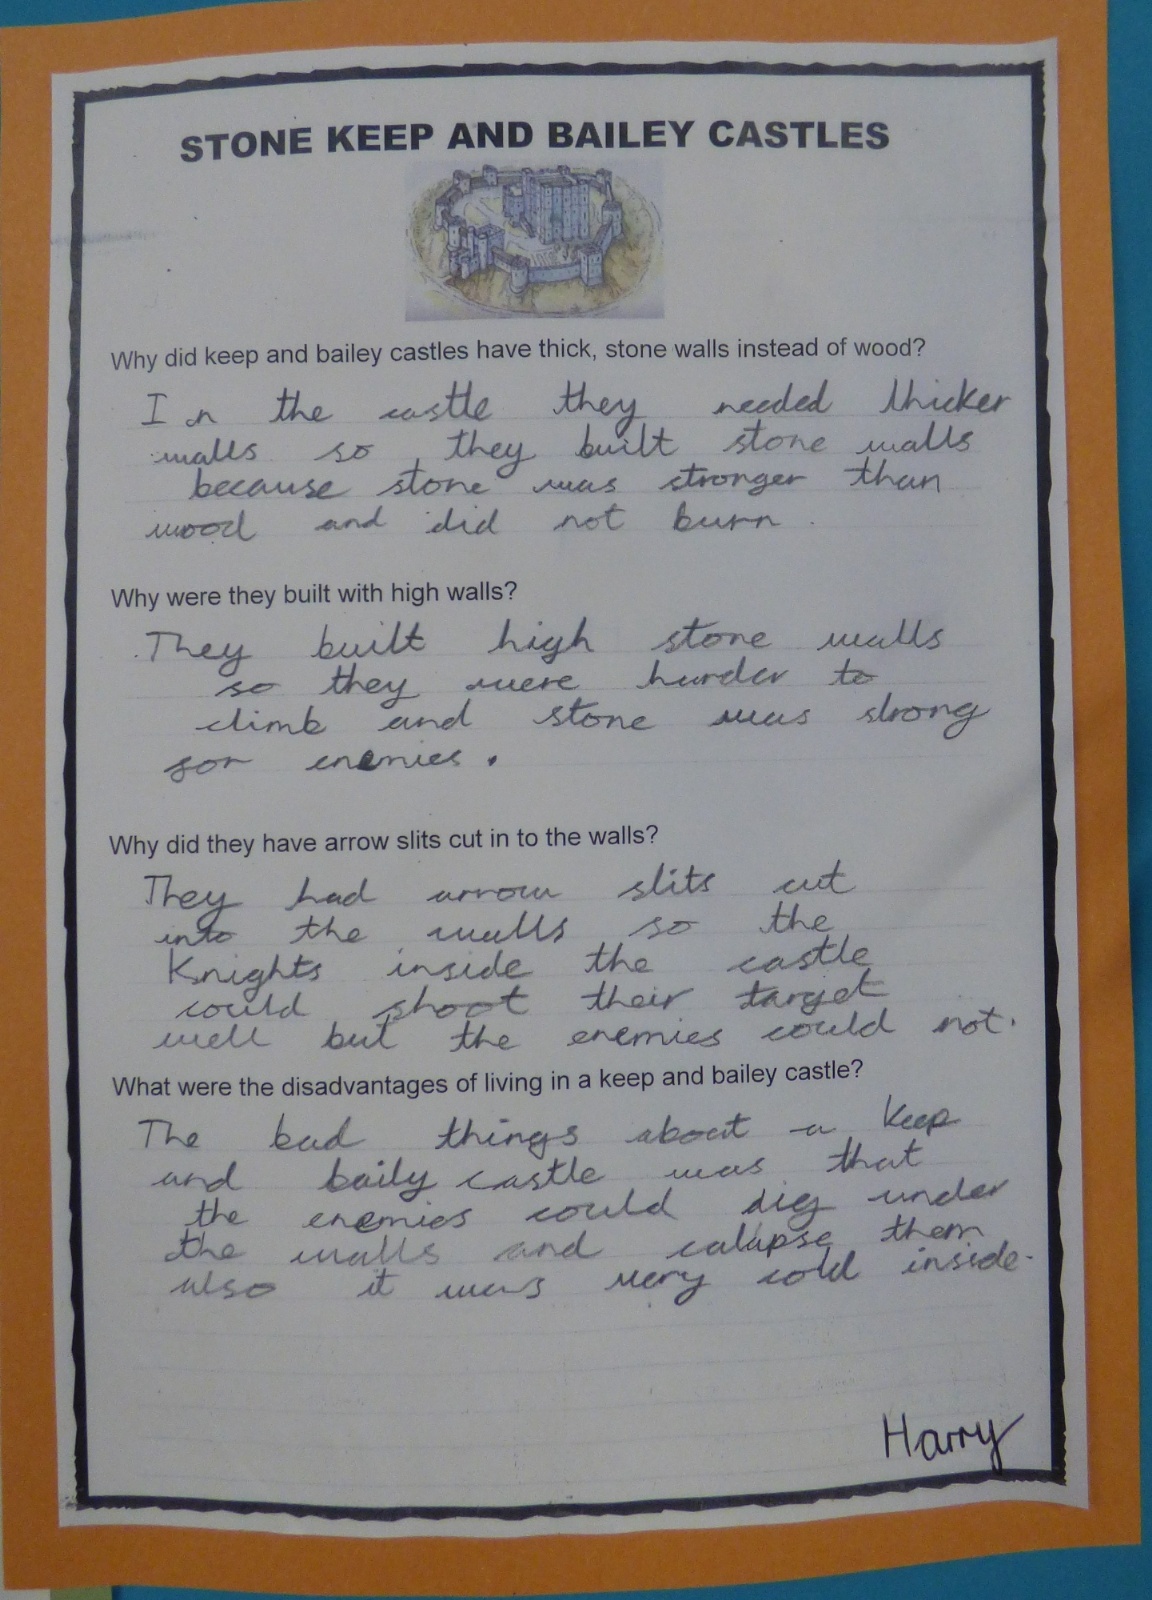 STONE KEEP AND BAILEY CASTLES
Why did keep and bailey castles have thick, stone walls instead of wood?
In the castle they needed thicker
walls so they built stone walls
because stone was stronger than
wood and did not burn.
Why were they built with high walls?
They built high stone walls
so they were harder to
climb and stone was strong
for enemies.
Why did they have arrow slits cut in to the walls?
They had arrow slits cut
into the walls so the
Knights inside the castle
could shoot their target
well but the enemies could not.
What were the disadvantages of living in a keep and bailey castle?
The bad things about a keep
and baily castle was that
the enemies could dig under
the walls and calapse them
also it was very cold inside.
Harry